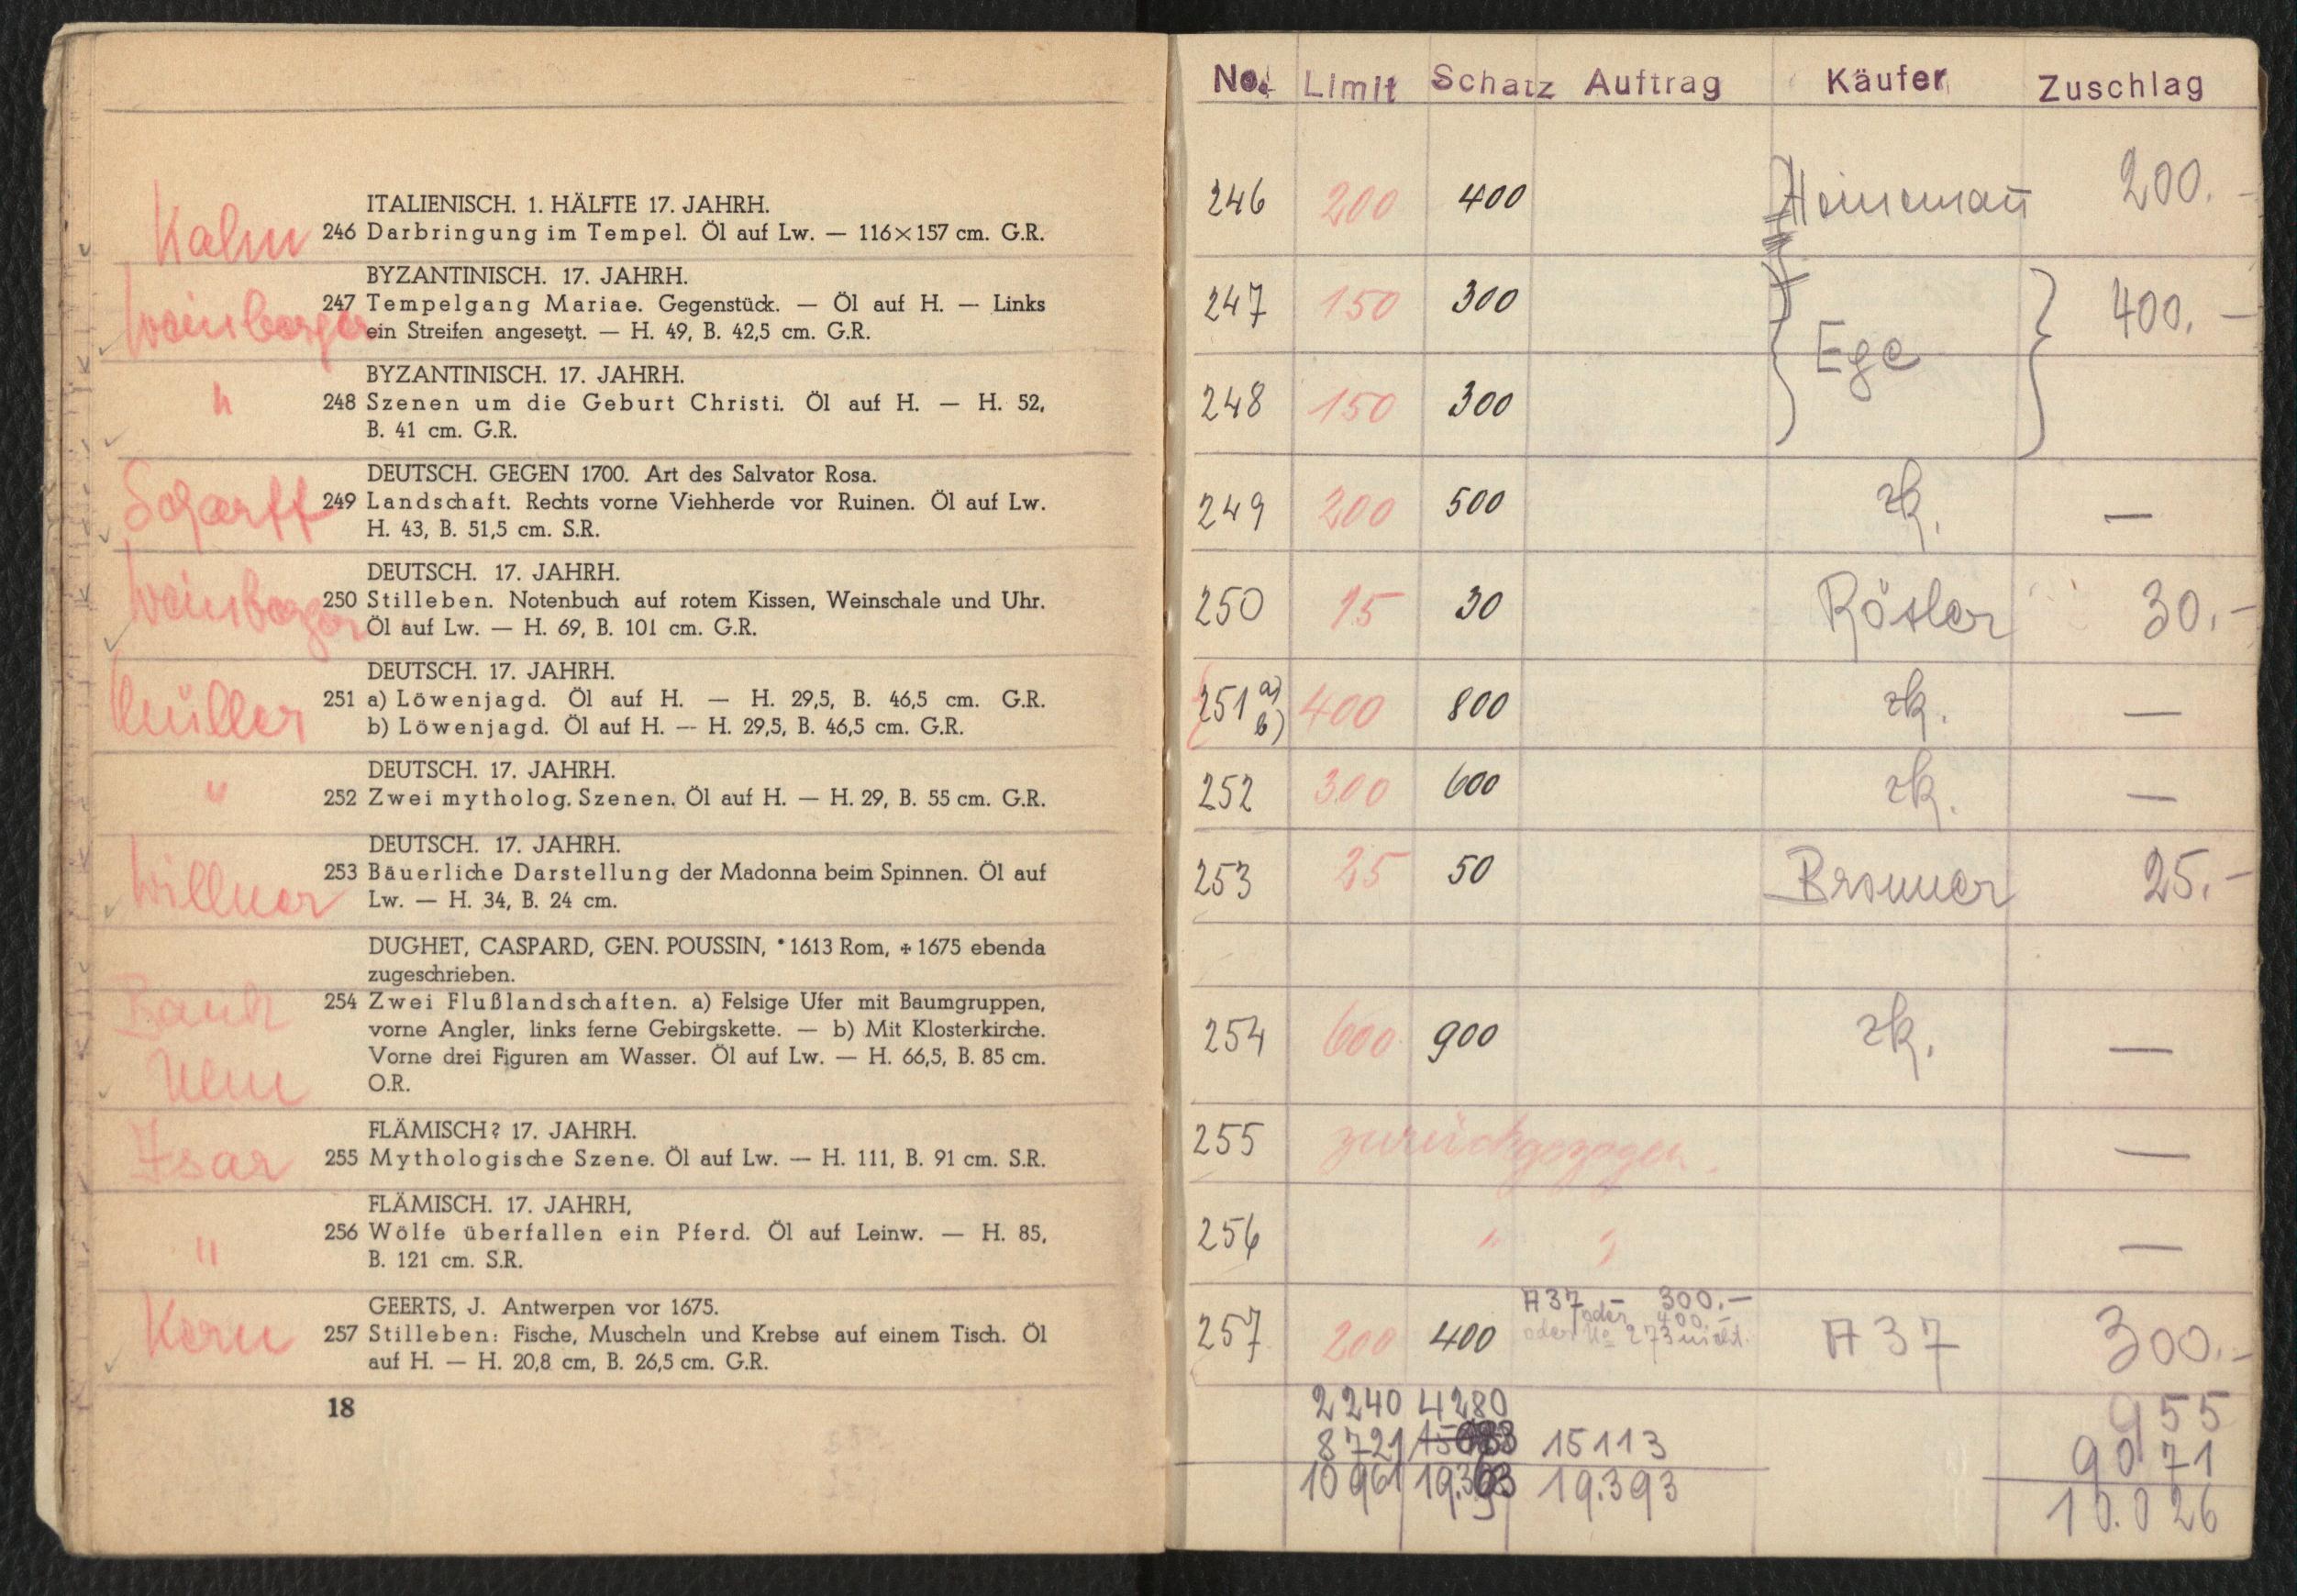 ITALIENISCH. 1. HÄLFTE 17. JAHRH.
Kahn 246 Darbringung im Tempel. Öl auf Lw. — 116×157 cm. G.R.
BYZANTINISCH. 17. JAHRH.
Weinberger 247 Tempelgang Mariae. Gegenstück. — Öl auf H. — Links
ein Streifen angesetzt. — H. 49, B. 42,5 cm. G.R.
BYZANTINISCH. 17. JAHRH.
" 248 Szenen um die Geburt Christi. Öl auf H. — H. 52,
B. 41 cm. G.R.
DEUTSCH. GEGEN 1700. Art des Salvator Rosa.
Scharff 249 Landschaft. Rechts vorne Viehherde vor Ruinen. Öl auf Lw.
H. 43, B. 51,5 cm. S.R.
DEUTSCH. 17. JAHRH.
Weinberger 250 Stilleben. Notenbuch auf rotem Kissen, Weinschale und Uhr.
Öl auf Lw. — H. 69, B. 101 cm. G.R.
DEUTSCH. 17. JAHRH.
Müller 251 a) Löwenjagd. Öl auf H. — H. 29,5, B. 46,5 cm. G.R.
b) Löwenjagd. Öl auf H. — H. 29,5, B. 46,5 cm. G.R.
DEUTSCH. 17. JAHRH.
" 252 Zwei mytholog. Szenen. Öl auf H. — H. 29, B. 55 cm. G.R.
DEUTSCH. 17. JAHRH.
Willner 253 Bäuerliche Darstellung der Madonna beim Spinnen. Öl auf
Lw. — H. 34, B. 24 cm.
DUGHET, CASPARD, GEN. POUSSIN, * 1613 Rom, + 1675 ebenda
zugeschrieben.
Bank 254 Zwei Flußlandschaften. a) Felsige Ufer mit Baumgruppen,
vorne Angler, links ferne Gebirgskette. — b) Mit Klosterkirche.
Ulm Vorne drei Figuren am Wasser. Öl auf Lw. — H. 66,5, B. 85 cm.
O.R.
FLÄMISCH? 17. JAHRH.
Isar 255 Mythologische Szene. Öl auf Lw. — H. 111, B. 91 cm. S.R.
FLÄMISCH. 17. JAHRH,
" 256 Wölfe überfallen ein Pferd. Öl auf Leinw. — H. 85,
B. 121 cm. S.R.
GEERTS, J. Antwerpen vor 1675.
Kern 257 Stilleben: Fische, Muscheln und Krebse auf einem Tisch. Öl
auf H. — H. 20,8 cm, B. 26,5 cm. G.R.
18
No. Limit Schatz Auftrag Käufer Zuschlag
246 200 400 Heinemañ 200.-
247 150 300 Ege 400.—
248 150 300
249 200 500 zk. —
250 15 30 Rösler 30.-
251 a) b) 400 800 zk. —
252 300 600 zk. —
253 25 50 Bronner 25.-
254 600 900 zk. —
255 zurückgezogen. —
256 " " —
257 200 400 A 37 - 300.— oder 400.— oder No 273 nicht. A 37 300.-
2240 4280 955
8721 15113 9071
10961 19.393 19.393 10.026